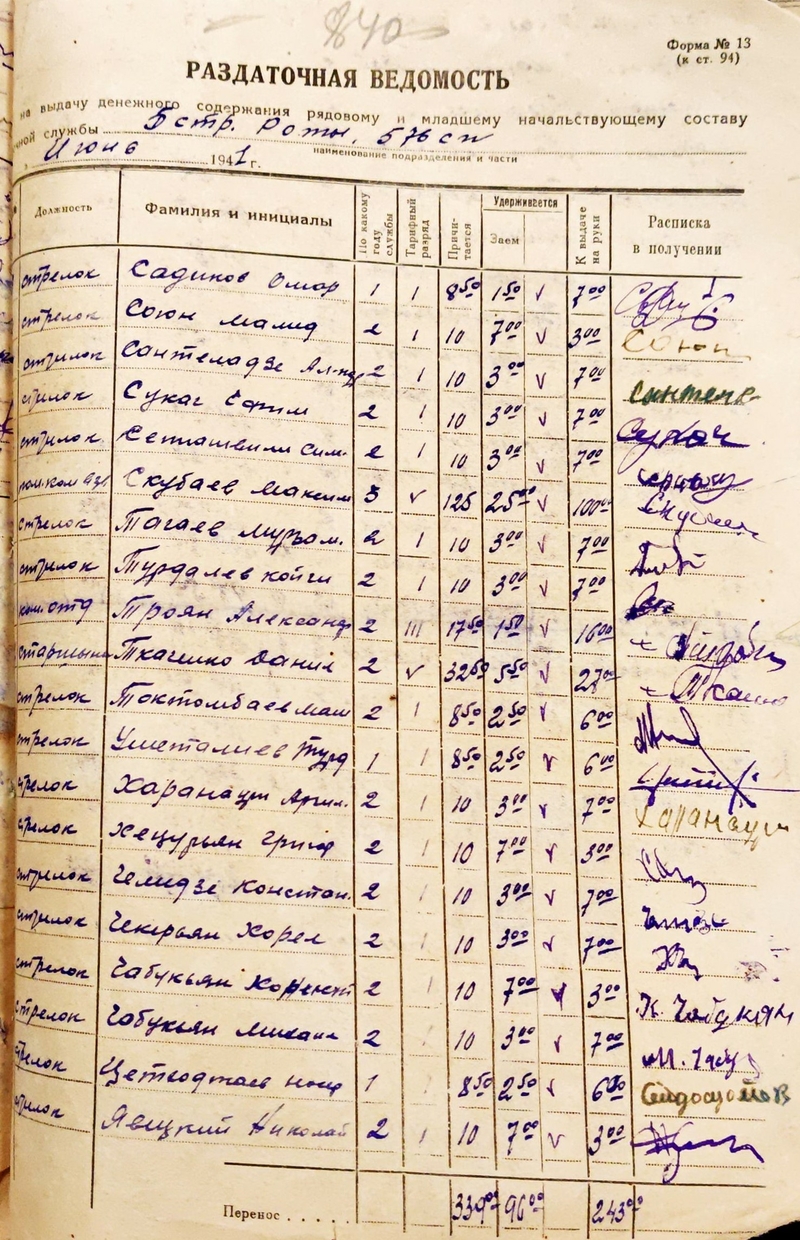 840
Форма № 13
(к ст. 94)
РАЗДАТОЧНАЯ ВЕДОМОСТЬ
на выдачу денежного содержания рядовому и младшему начальствующему составу
ной службы 5 стр. роты, 576 сп
наименование подразделения и части
Июнь 1941 г.
Должность Фамилия и инициалы По какому году службы Тарифный разряд Причитается Удерживается Заем К выдаче на руки Расписка в получении
стрелок Садиков Омар 1 1 8 50 1 50 v 7 00
стрелок Союн Малид 2 1 10 7 00 v 3 00 Союн
стрелок Сантеладзе 2 1 10 3 00 v 7 00 сантела
стрелок Сукач Ефим 2 1 10 3 00 v 7 00 Сукач
стрелок Сепиашвили Сим. 2 1 10 3 00 v 7 00
Скубаев Максим 3 v 125 25 00 v 100 00
стрелок Тагаев Мурзам. 2 1 10 3 00 v 7 00
стрелок Турдалев Койги 2 1 10 3 00 v 7 00
ком.отд Троян Александр 2 III 17 50 1 50 v 16 00
старшина Ткаченко Данил 2 v 32 50 5 50 v 27 00
стрелок Токтомбаев Маш 2 1 8 50 2 50 v 6 00
стрелок Ушеталиев Турд 1 1 8 50 2 50 v 6 00
стрелок Харанаули Арчил. 2 1 10 3 00 v 7 00 Харанаули
стрелок Хецурьян Григор 2 1 10 7 00 v 3 00
стрелок Челидзе Констан. 2 1 10 3 00 v 7 00
стрелок Чекерьян Хорен 2 1 10 3 00 v 7 00
стрелок Чабукьян 2 1 10 7 00 v 3 00 К. Чабукян
стрелок Чабукьян Михаил 2 1 10 3 00 v 7 00 М. Чабу
стрелок 1 1 8 50 2 50 v 6 00
стрелок Явицкий Николай 2 1 10 7 00 v 3 00
Перенос . . . . . 339 00 96 00 243 00